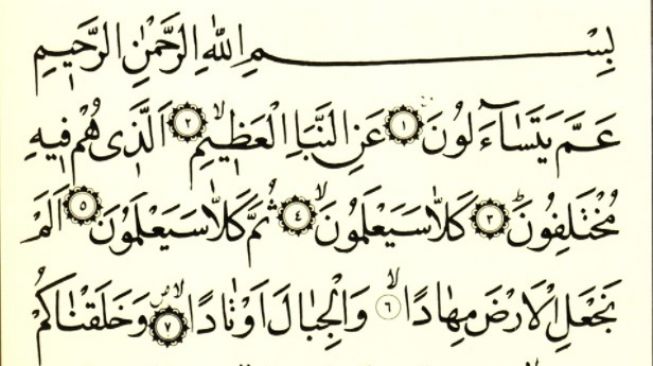 بِسْمِ اللهِ الرَّحْمٰنِ الرَّحٖيمِ
عَمَّ يَتَسَٓاءَلُونَ ﴿١﴾ عَنِ النَّبَاِ الْعَظٖيمِۙ ﴿٢﴾ اَلَّذٖى هُمْ فٖيهِ
مُخْتَلِفُونَۜ ﴿٣﴾ كَلَّا سَيَعْلَمُونَۙ ﴿٤﴾ ثُمَّ كَلَّا سَيَعْلَمُونَ ﴿٥﴾ اَلَمْ
نَجْعَلِ الْاَرْضَ مِهَادًاۙ ﴿٦﴾ وَالْجِبَالَ اَوْتَادًاۙ ﴿٧﴾ وَخَلَقْنَاكُمْ